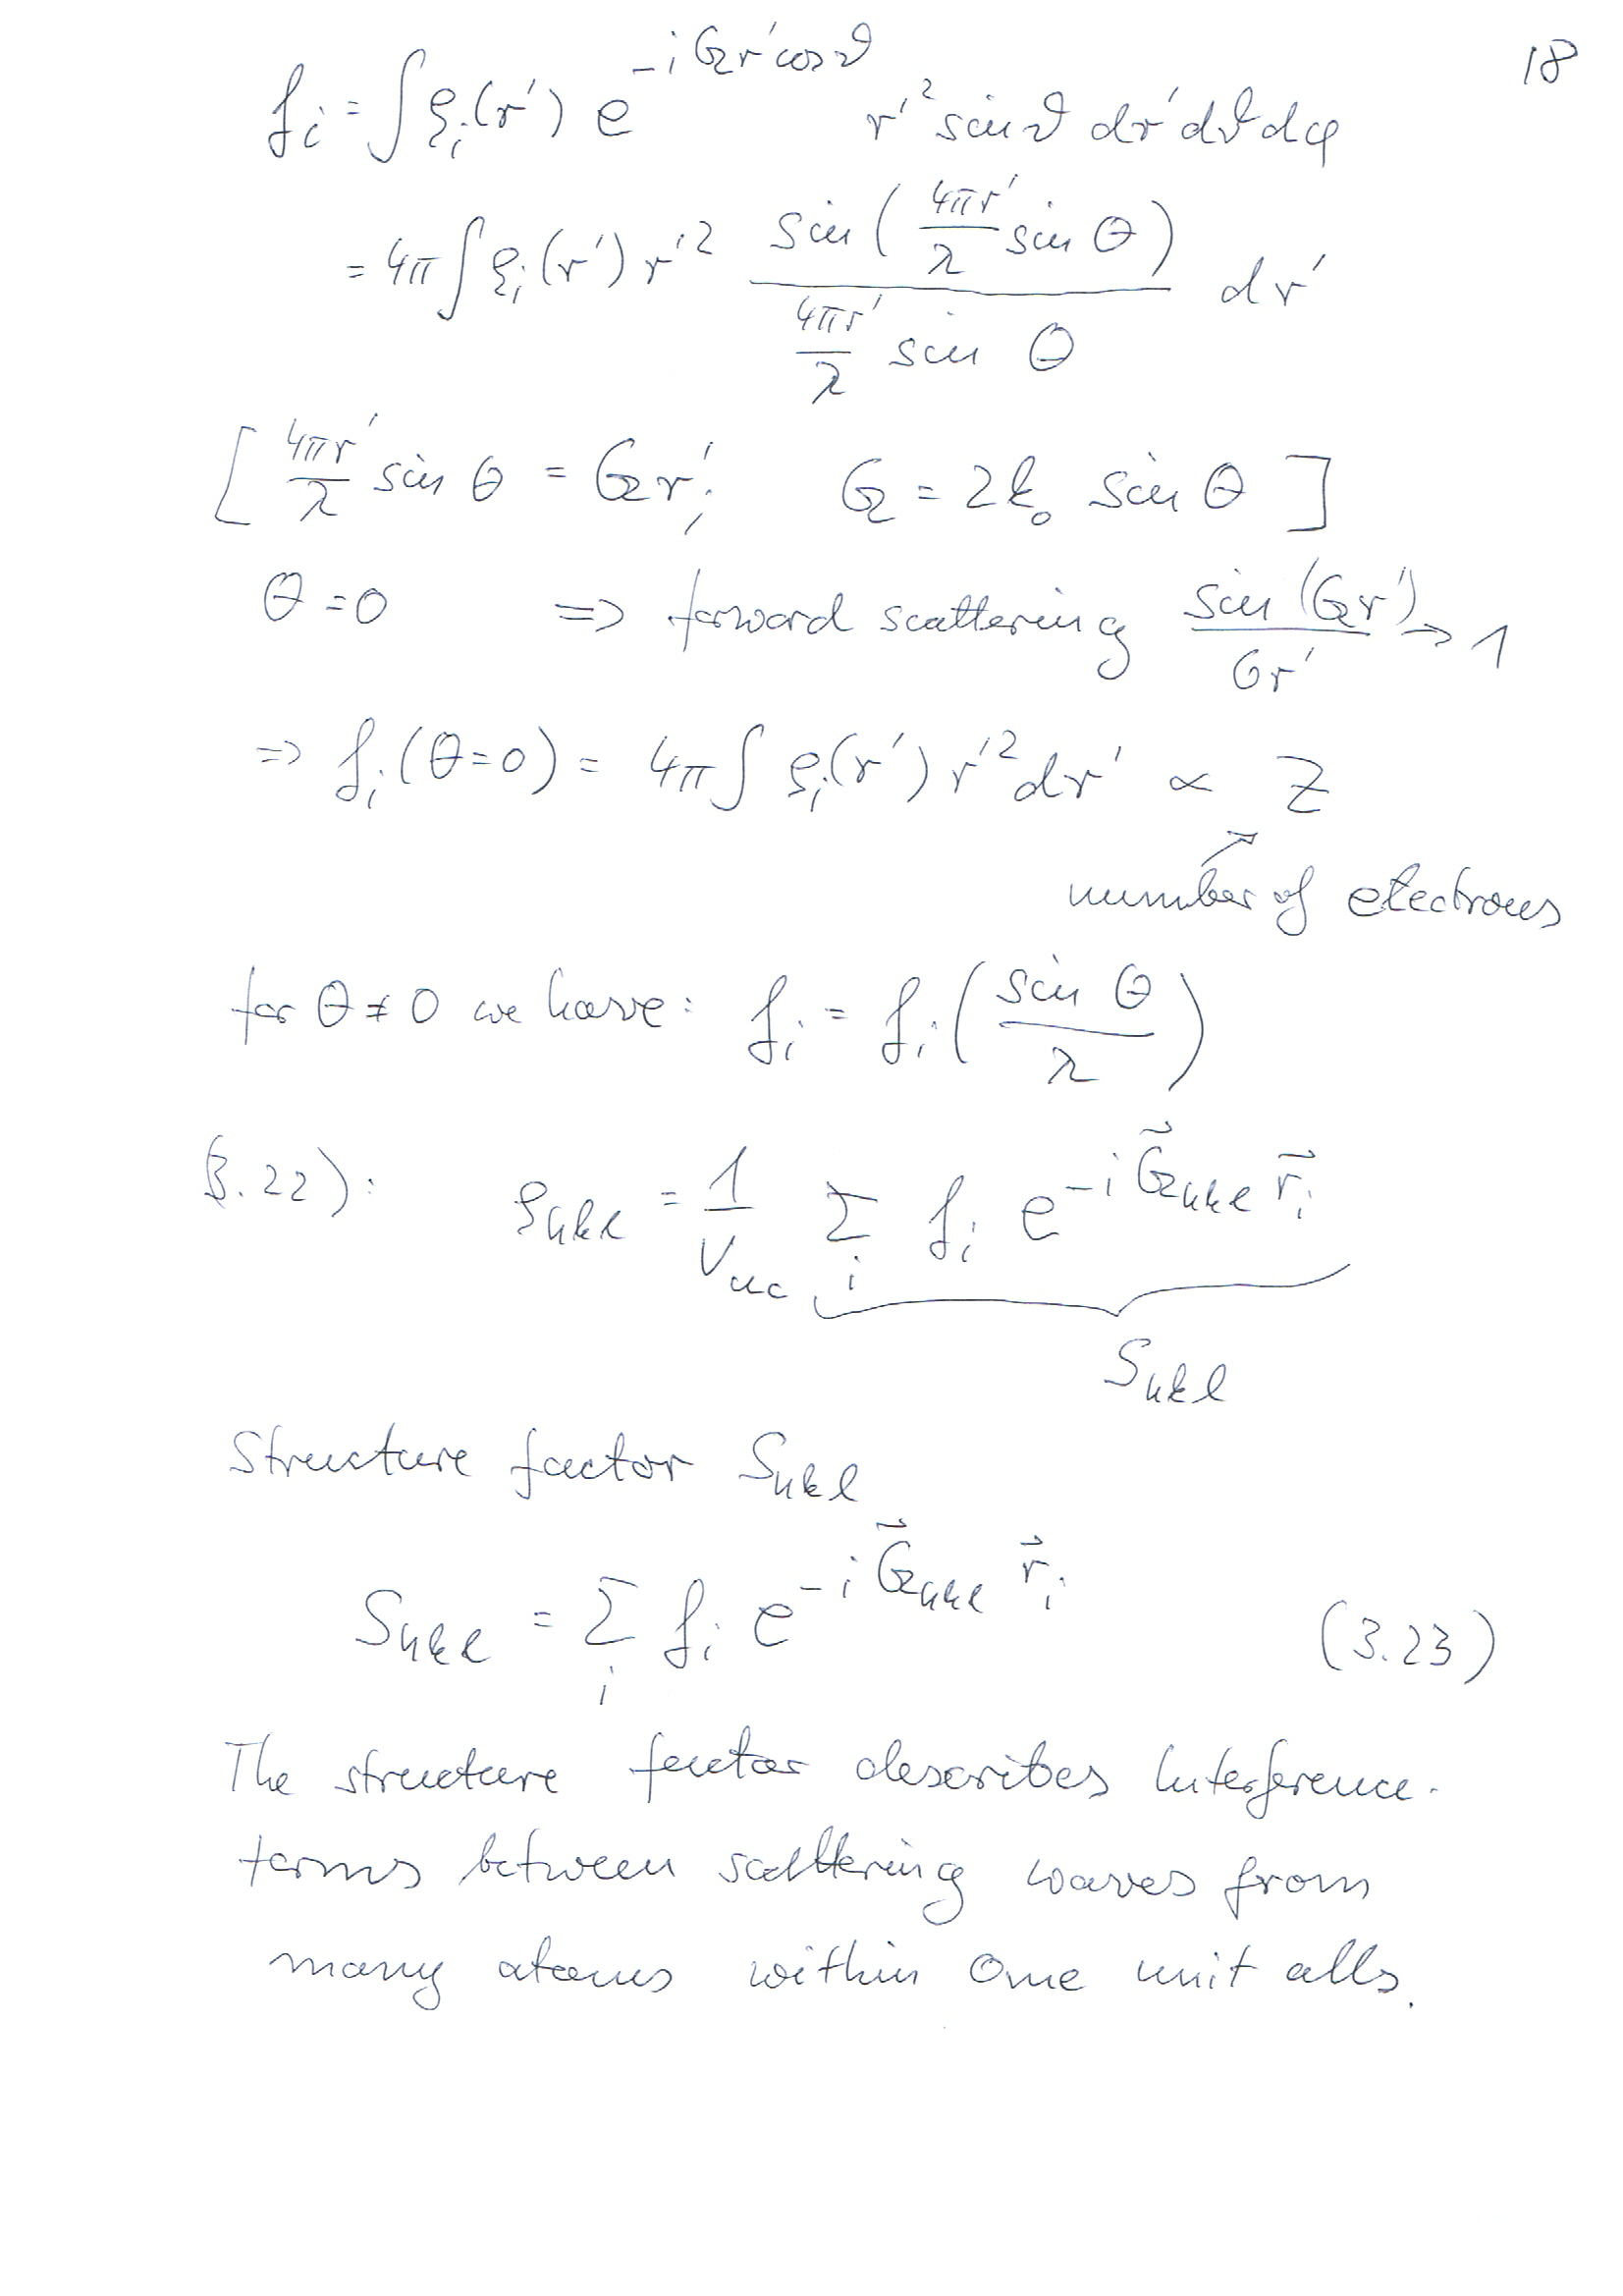 18
f_i = ∫ ρ_i(r') e^{-iGr'cosϑ} r'² sinϑ dr'dϑdφ
= 4π ∫ ρ_i(r') r'² sin(4πr'/λ sin θ) / (4πr'/λ sin θ) dr'
[ 4πr'/λ sin θ = Gr'; G = 2k₀ sin θ ]
θ = 0 => forward scattering sin(Gr')/Gr' → 1
=> f_i(θ=0) = 4π ∫ ρ_i(r') r'² dr' ∝ Z
number of electrons
for θ ≠ 0 we have: f_i = f_i(sin θ / λ)
(3.22): ρ_hkl = 1/V_uc Σ_i f_i e^{-i G⃗_hkl r⃗_i}
S_hkl
Structure factor S_hkl
S_hkl = Σ_i f_i e^{-i G⃗_hkl r⃗_i} (3.23)
The structure factor describes Interference-
terms between scattering waves from
many atoms within one unit cells.